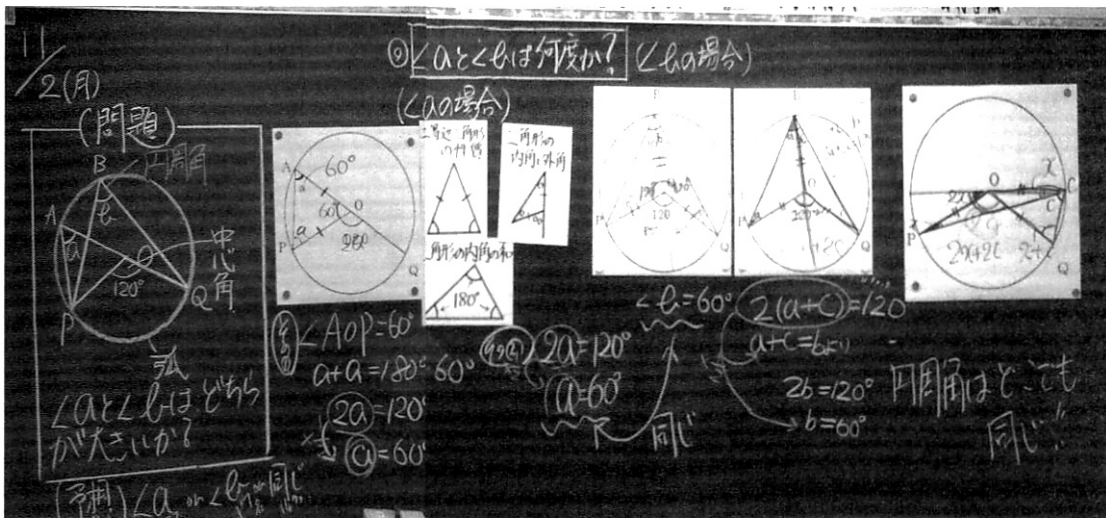 11/2(月)
(問題)
B 円周角
A
b
a
O
中心角
120°
Q
P
弧
∠aと∠bはどちら
が大きいか?
(予想)∠a or ∠b or 同じ
◎∠aと∠bは何度か?
(∠aの場合)
A 60°
a
60° O
a
P
Q
二等辺三角形
の性質
三角形の
内角と外角
三角形の内角の和
180°
∠AOP=60°
a+a=180°-60°
2a=120°
a=60°
2a=120°
a=60°
同じ
(∠bの場合)
120
P
Q
O
P
Q
∠b=60°
2(a+c)=120
a+c=bより
2b=120°
b=60°
O
x
C
P
Q
円周角はどこでも
同じ!!